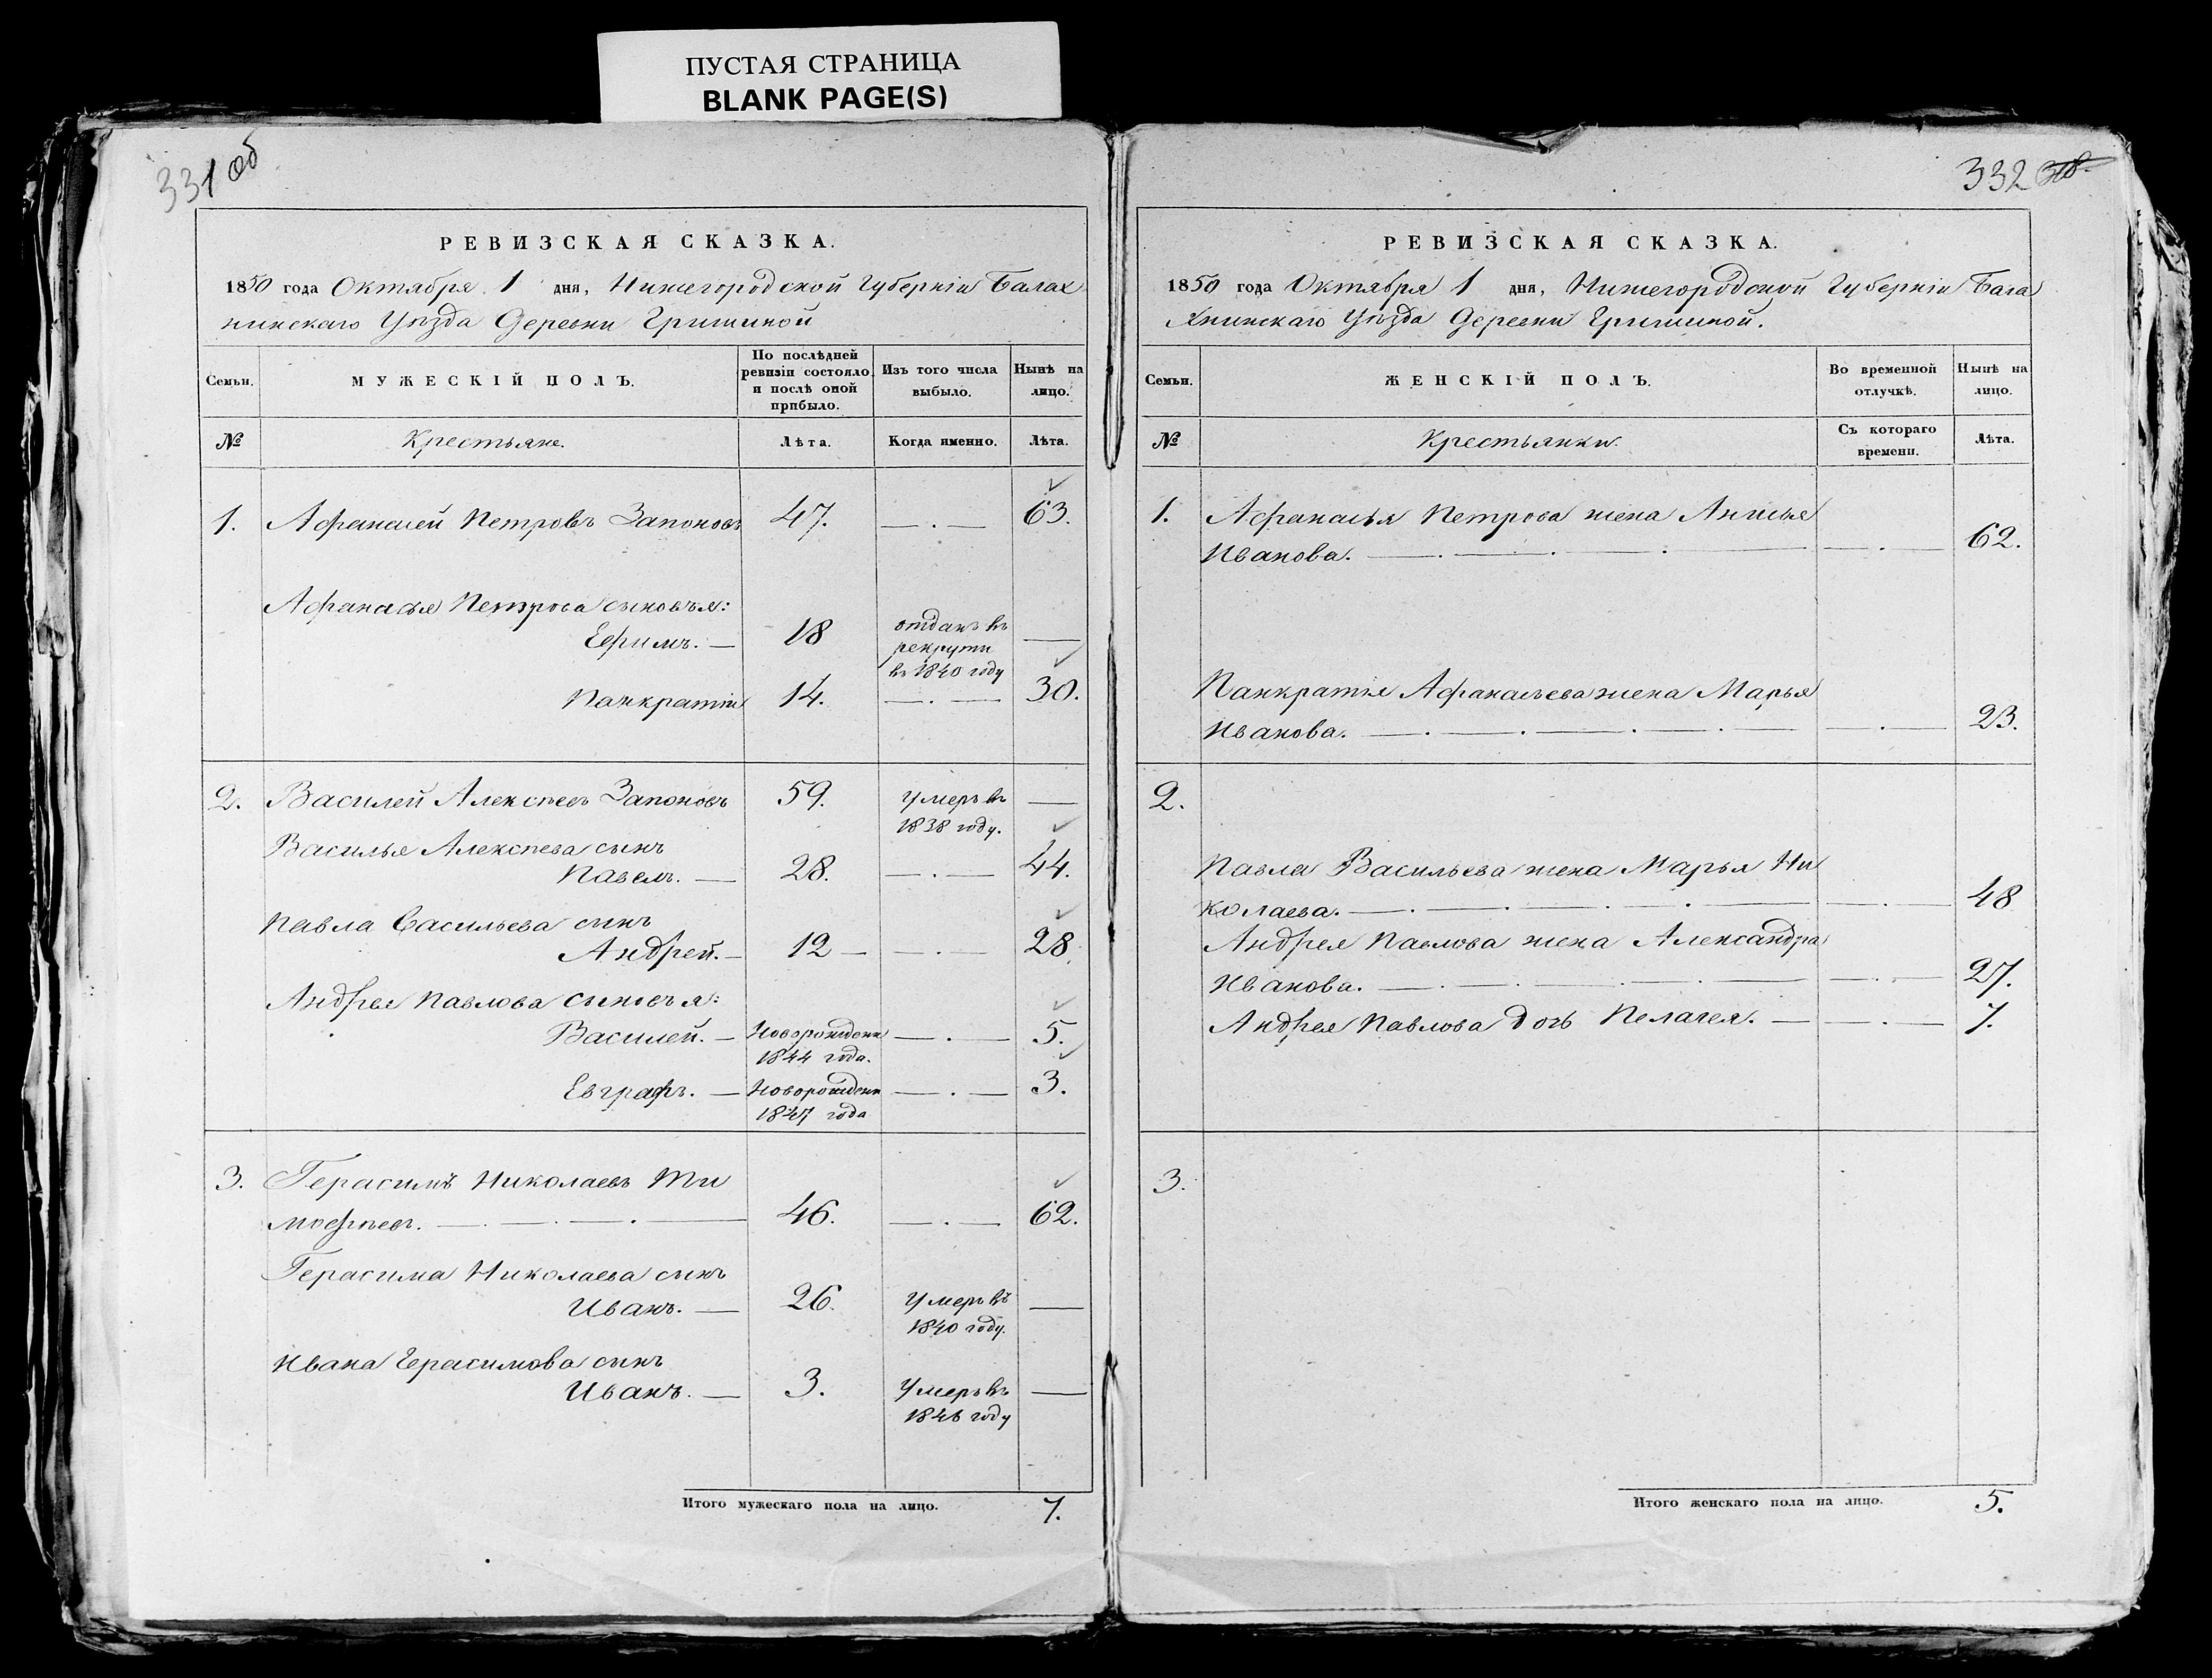 ПУСТАЯ СТРАНИЦА
BLANK PAGE(S)
331 об
РЕВИЗСКАЯ СКАЗКА.
1850 года Октября 1 дня, Нижегородской Губерніи Балах
нинскаго Уѣзда Деревни Гришиной
Семьи.
МУЖЕСКІЙ ПОЛЪ.
По послѣдней
ревизіи состояло
и послѣ оной
прибыло.
Изъ того числа
выбыло.
Нынѣ на
лицо.
№
Крестьяне.
Лѣта.
Когда именно.
Лѣта.
1. Афанасей Петровъ Запоновъ 47. — . — 63.
Афанасья Петрова сыновья:
Ефимъ. — 18 отданъ въ —
рекруты
въ 1840 году
Панкратій 14. — . — 30.
2. Василей Алексѣевъ Запоновъ 59. умеръ въ —
1838 году.
Василья Алексѣева сынъ
Павелъ. — 28. — . — 44.
Павла Васильева сынъ
Андрей. — 12 — — . — 28.
Андрея Павлова сыновья:
Василей. — Новорожденъ — . — 5.
1844 года.
Евграфъ. — Новорожденъ — . — 3.
1847 года
3. Герасимъ Николаевъ Ти
мофѣевъ. — . — . — . — 46. — . — 62.
Герасима Николаева сынъ
Иванъ. — 26. Умеръ въ —
1840 году.
Ивана Герасимова сынъ
Иванъ. — 3. Умеръ въ —
1846 году
Итого мужескаго пола на лицо. 7.
332
РЕВИЗСКАЯ СКАЗКА.
1850 года Октября 1 дня, Нижегородской Губерніи Бала
хнинскаго Уѣзда Деревни Гришиной.
Семьи.
ЖЕНСКІЙ ПОЛЪ.
Во временной
отлучкѣ.
Нынѣ на
лицо.
№
Крестьянки.
Съ котораго
времени.
Лѣта.
1. Афанасья Петрова жена Анисья
Иванова. — . — . — . — — . — 62.
Панкратья Афанасьева жена Марья
Иванова. — . — . — . — . — — . — 23.
2.
Павла Васильева жена Марья Ни
колаева. — . — . — . — . — — . — 48
Андрея Павлова жена Александра
Иванова. — . — . — . — . — — . — 27.
Андрея Павлова дочь Пелагея. — — . — 7.
3.
Итого женскаго пола на лицо. 5.